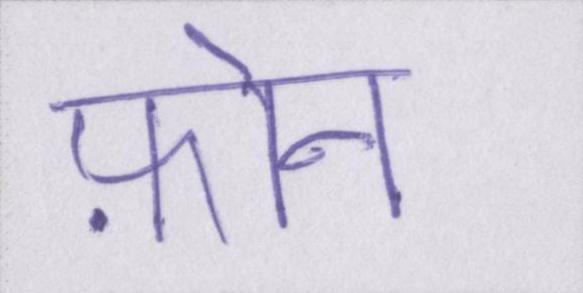 फ़ोन